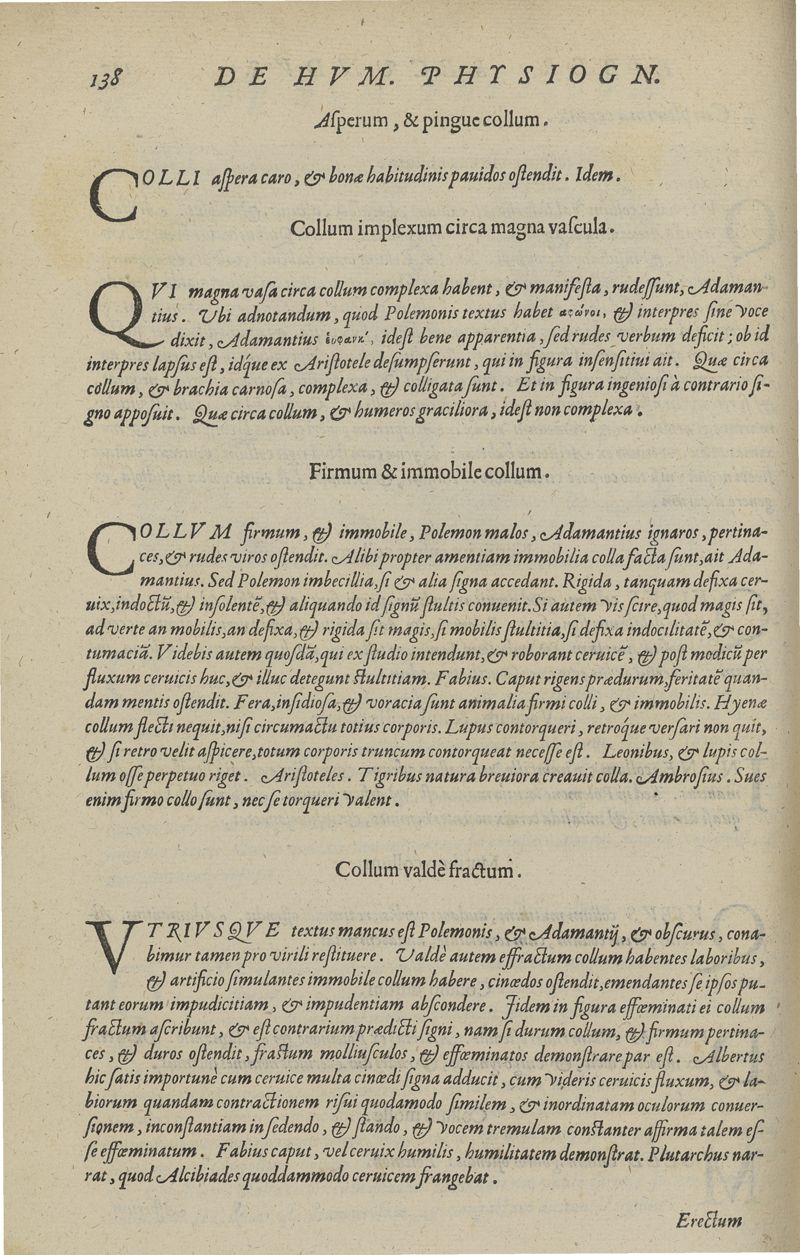 138 DE HVM. PHYSIOGN.
Aſperum, & pingue collum.
COLLI aſpera caro, & bonæ habitudinis pauidos oſtendit. Idem.
Collum implexum circa magna vaſcula.
QVI magna vaſa circa collum complexa habent, & manifeſta, rudeſſunt, Adaman-
tius. Vbi adnotandum, quod Polemonis textus habet & interpres ſine voce
dixit, Adamantius ideſt bene apparentia, ſed rudes verbum deficit; ob id
interpres lapſus eſt, idq́ue ex Ariſtotele deſumpſerunt, qui in figura inſenſitiui ait. Quæ circa
collum, & brachia carnoſa, complexa, & colligata ſunt. Et in figura ingenioſi à contrario ſi-
gno appoſuit. Quæ circa collum, & humeros graciliora, ideſt non complexa.
Firmum & immobile collum.
COLLVM firmum, & immobile, Polemon malos, Adamantius ignaros, pertina-
ces, & rudes viros oſtendit. Alibi propter amentiam immobilia colla facta ſunt, ait Ada-
mantius. Sed Polemon imbecillia, ſi & alia ſigna accedant. Rigida, tanquam defixa cer-
uix, indoctũ, & inſolentẽ, & aliquando id ſignũ ſtultis conuenit. Si autem vis ſcire, quod magis ſit,
ad verte an mobilis, an defixa, & rigida ſit magis, ſi mobilis ſtultitia, ſi defixa indocilitatẽ, & con-
tumaciã. Videbis autem quoſdã, qui ex ſtudio intendunt, & roborant ceruicẽ, & poſt modicũ per
fluxum ceruicis huc, & illuc detegunt ſtultitiam. Fabius. Caput rigens prædurum, feritatẽ quan-
dam mentis oſtendit. Fera, inſidioſa, & voracia ſunt animalia firmi colli, & immobilis. Hyenæ
collum flecti nequit, niſi circumactu totius corporis. Lupus contorqueri, retroq́ue verſari non quit,
& ſi retro velit aſpicere, totum corporis truncum contorqueat neceſſe eſt. Leonibus, & lupis col-
lum oſſe perpetuo riget. Ariſtoteles. Tigribus natura breuiora creauit colla. Ambroſius. Sues
enim firmo collo ſunt, nec ſe torqueri valent.
Collum valdè fractum.
VTRIVSQVE textus mancus eſt Polemonis, & Adamantij, & obſcurus, cona-
bimur tamen pro virili reſtituere. Valdè autem effractum collum habentes laboribus,
& artificio ſimulantes immobile collum habere, cinœdos oſtendit, emendantes ſe ipſos pu-
tant eorum impudicitiam, & impudentiam abſcondere. Jidem in figura effœminati ei collum
fractum aſcribunt, & eſt contrarium prædicti ſigni, nam ſi durum collum, & firmum pertina-
ces, & duros oſtendit, fractum molliuſculos, & effœminatos demonſtrare par eſt. Albertus
hic ſatis importunè cum ceruice multa cinœdi ſigna adducit, cum videris ceruicis fluxum, & la-
biorum quandam contractionem riſui quodamodo ſimilem, & inordinatam oculorum conuer-
ſionem, inconſtantiam in ſedendo, & ſtando, & vocem tremulam conſtanter affirma talem eſ-
ſe effœminatum. Fabius caput, vel ceruix humilis, humilitatem demonſtrat. Plutarchus nar-
rat, quod Alcibiades quoddammodo ceruicem frangebat.
Erectum